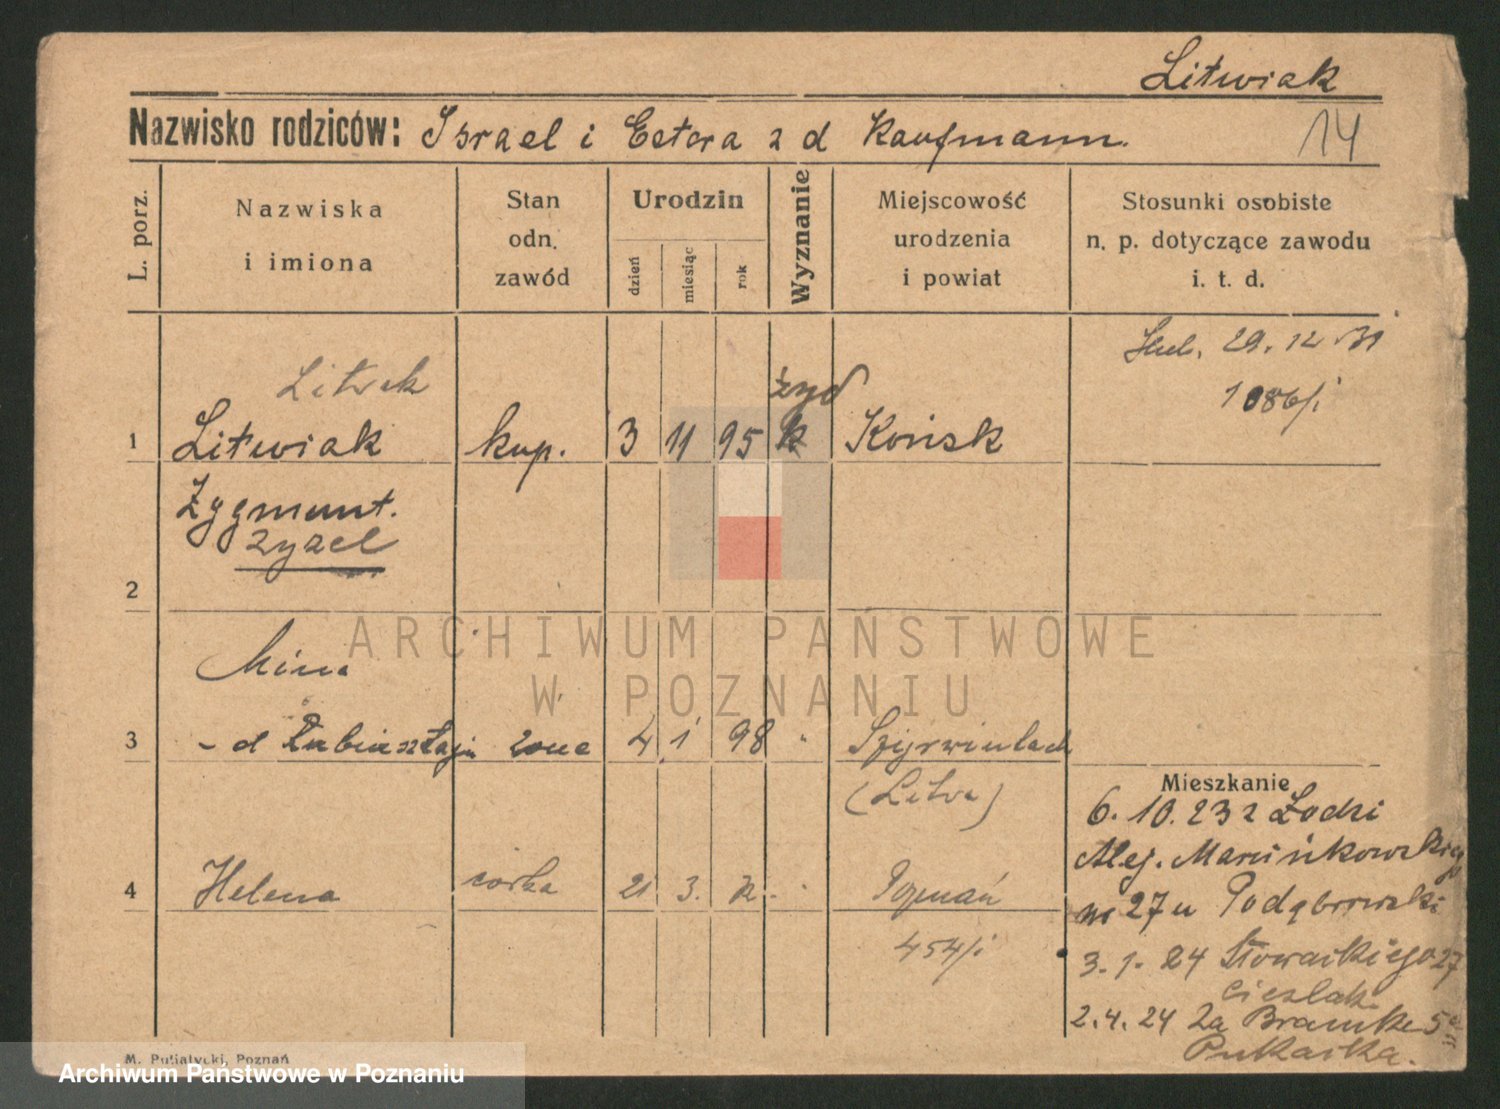 Litwiak
Nazwisko rodziców: Israel i Estera z d Kaufmann.
14
L. porz.
Nazwiska
i imiona
Stan
odn.
zawód
Urodzin
dzień
miesiąc
rok
Wyznanie
Miejscowość
urodzenia
i powiat
Stosunki osobiste
n. p. dotyczące zawodu
i. t. d.
29.12.31
Litwak
żyd
1 Litwiak kup. 3 11 95 k Końsk
Zygmunt.
Zyzel
2
ARCHIWUM PAŃSTWOWE
W POZNANIU
Mina
3 - d żona 4 1 98 "
(Litva)
Mieszkanie
6. 10. 23 z Łodzi
Alej. Marcinkowskiego
4 Helena córka 21 3. Poznań
nr 27 u Podgbrowski
454/i
3. 1. 24 Słowackiego 27
Cieslak
2. 4. 24 Za Bramke 5a
Piekarka.
M. Putiatycki, Poznań
Archiwum Państwowe w Poznaniu